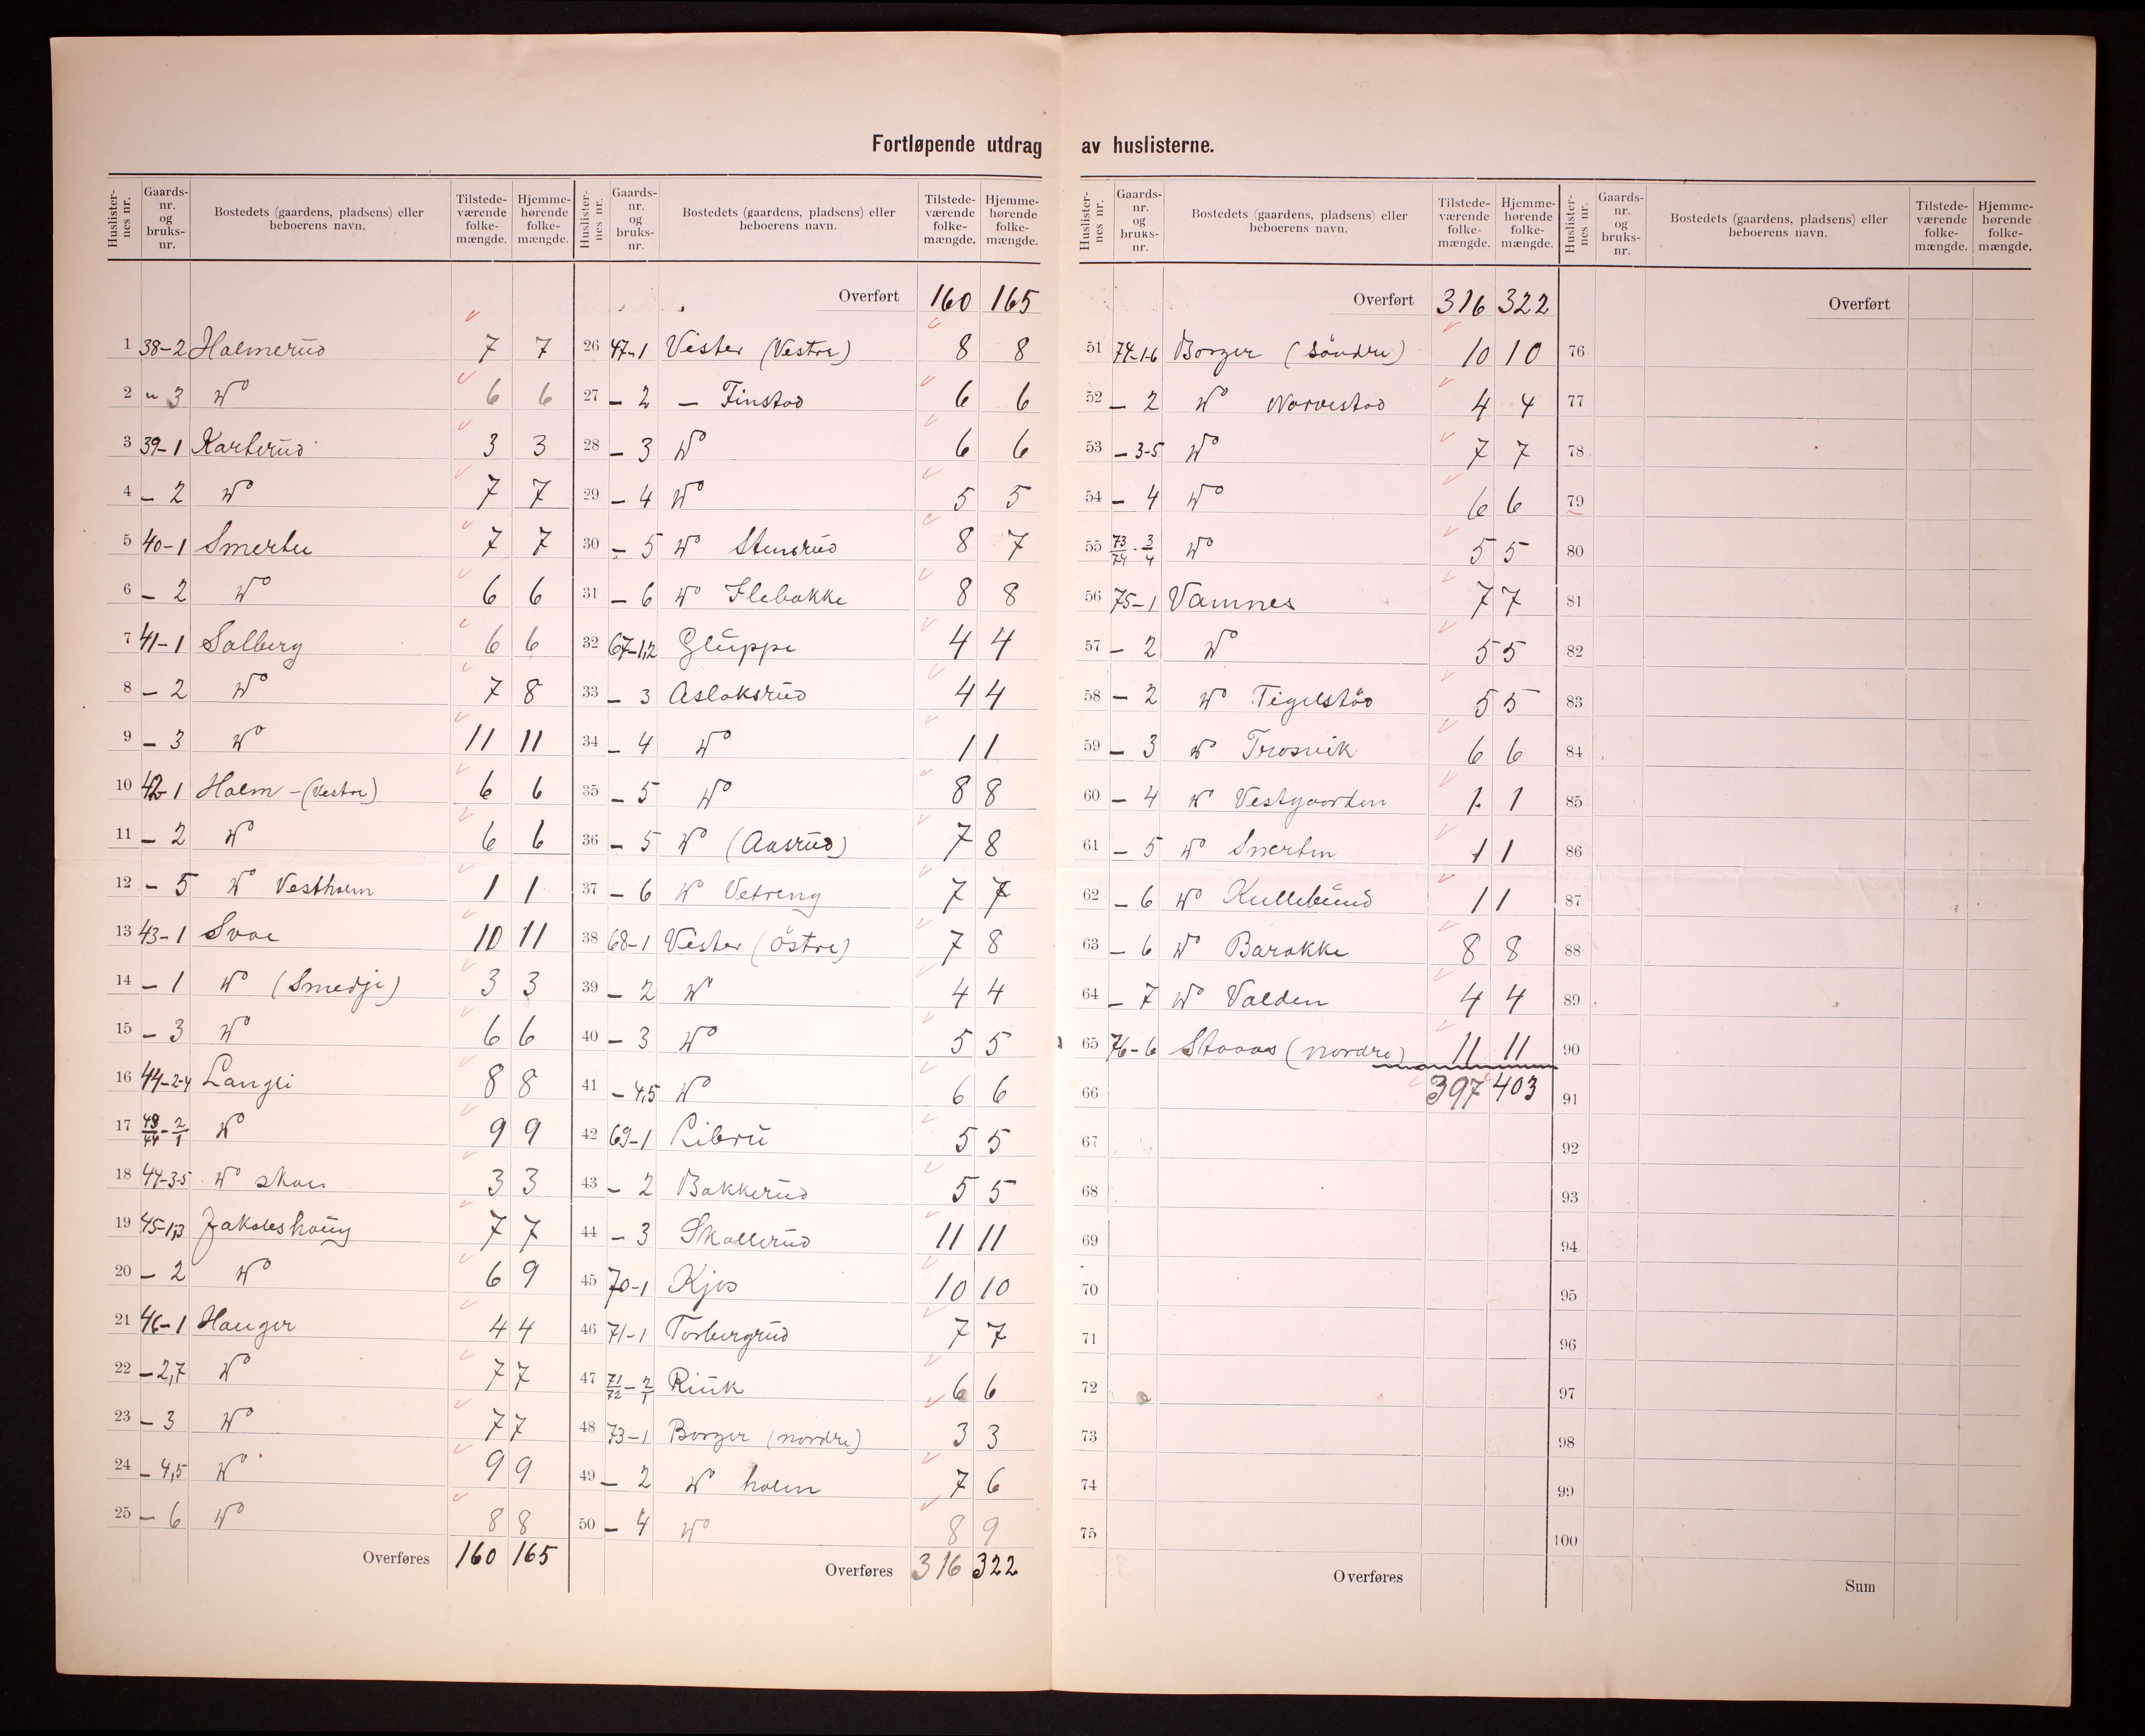 Fortløpende utdrag av huslisterne.
Huslister-nes nr. Gaards-nr. og bruks-nr. Bostedets (gaardens, pladsens) eller beboerens navn. Tilstede-værende folke-mængde. Hjemme-hørende folke-mængde.
1 38-2 Holmerud 7 7
2 " 3 do 6 6
3 39-1 Karterud 3 3
4 - 2 do 7 7
5 40-1 Smertu 7 7
6 - 2 do 6 6
7 41-1 Solberg 6 6
8 - 2 do 7 8
9 - 3 do 11 11
10 42-1 Holm - (Vestre) 6 6
11 - 2 do 6 6
12 - 5 do Vestholm 1 1
13 43-1 Svae 10 11
14 - 1 do (Smedje) 3 3
15 - 3 do 6 6
16 44-2-4 Langli 8 8
17 43/44-2/1 do 9 9
18 44-3-5 do skau 3 3
19 45-1,3 Jakoleshaug 7 7
20 - 2 do 6 9
21 46-1 Hauger 4 4
22 - 2,7 do 7 7
23 - 3 do 7 7
24 - 4,5 do 9 9
25 - 6 do 8 8
Overføres 160 165
Huslister-nes nr. Gaards-nr. og bruks-nr. Bostedets (gaardens, pladsens) eller beboerens navn. Tilstede-værende folke-mængde. Hjemme-hørende folke-mængde.
Overført 160 165
26 47-1 Vister (Vestre) 8 8
27 - 2 - Finstad 6 6
28 - 3 do 6 6
29 - 4 do 5 5
30 - 5 do Stensrud 8 7
31 - 6 do Flebakke 8 8
32 67-1,2 Gluppe 4 4
33 - 3 Aslaksrud 4 4
34 - 4 do 1 1
35 - 5 do 8 8
36 - 5 do (Aasrud) 7 8
37 - 6 do Vetreng 7 7
38 68-1 Vister (östre) 7 8
39 - 2 do 4 4
40 - 3 do 5 5
41 - 4,5 do 6 6
42 69-1 Libru 5 5
43 - 2 Bakkerud 5 5
44 - 3 Skallerud 11 11
45 70-1 Kjos 10 10
46 71-1 Torbergrud 7 7
47 71/72-2/1 Riuk 6 6
48 73-1 Borger (nordre) 3 3
49 - 2 do holm 7 6
50 - 4 do 8 9
Overføres 316 322
Huslister-nes nr. Gaards-nr. og bruks-nr. Bostedets (gaardens, pladsens) eller beboerens navn. Tilstede-værende folke-mængde. Hjemme-hørende folke-mængde.
Overført 316 322
51 74-1-6 Borger (söndre) 10 10
52 - 2 do Norvestad 4 4
53 - 3-5 do 7 7
54 - 4 do 6 6
55 73/74-3/4 do 5 5
56 75-1 Vamnes 7 7
57 - 2 do 5 5
58 - 2 do Tigelstad 5 5
59 - 3 do Trosvik 6 6
60 - 4 do Vestgaarden 1 1
61 - 5 do Smertun 1 1
62 - 6 do Kullebund 1 1
63 - 6 do Barakke 8 8
64 - 7 do Valden 4 4
65 76-6 Staaas (nordre) 11 11
66 397 403
67
68
69
70
71
72
73
74
75
Overføres
Huslister-nes nr. Gaards-nr. og bruks-nr. Bostedets (gaardens, pladsens) eller beboerens navn. Tilstede-værende folke-mængde. Hjemme-hørende folke-mængde.
Overført
76
77
78
79
80
81
82
83
84
85
86
87
88
89
90
91
92
93
94
95
96
97
98
99
100
Sum